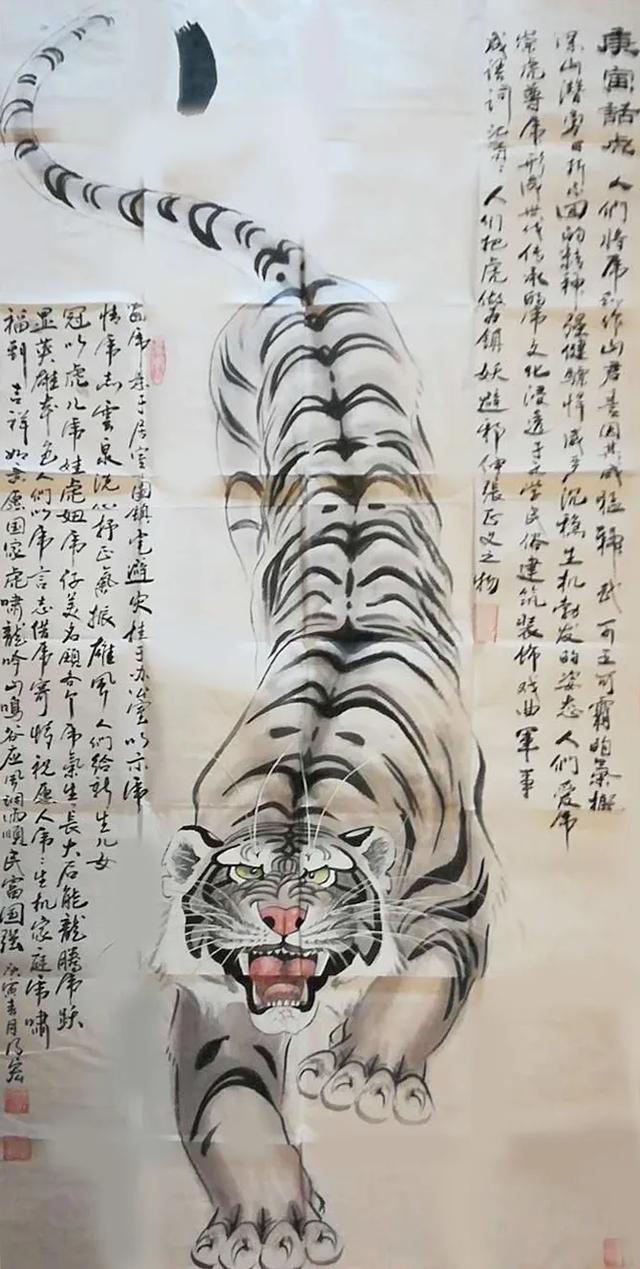 庚寅話虎 人們將虎列作山君是因其威猛武可王可霸的氣概
深山潛折不回的精神强健驃悍威严沉穩生机勃发的姿态人们爱虎
崇虎尊虎形成世代传承的虎文化浸透于文学民俗建筑装飾戏曲軍事
成语词汇人们把虎做为鎮妖避邪伸張正义之物
画虎悬于居室图鎮宅避灾挂于办公室以示虎
情虎志雲泉洗心抒正氣振雄風人们给新生儿女
冠以虎儿虎娃虎妞虎仔美名願各个虎氣生長大后能龍騰虎跃
显英雄本色人们以虎言志借虎寄情祝愿人虎:生机家庭虎嘯
福到吉祥如意愿国家虎嘯龍吟山鳴谷应風调雨順民富国强 庚寅春月